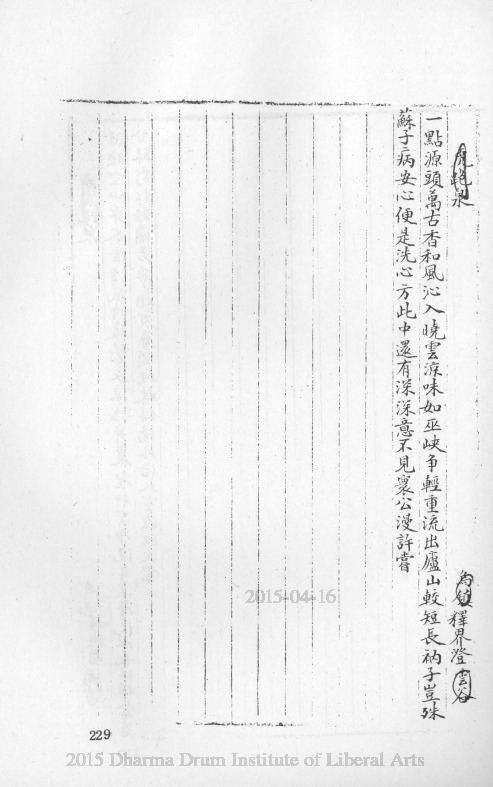 虎跑泉
釋界澄 雲谷
一點源頭萬古香和風沁入曉雲涼味如巫峽争輕重流出廬山較短長衲子豈殊
蘇子病安心便是洗心方此中還有深深意不見寰公漫許嘗
2015-04-16
229
2015 Dharma Drum Institute of Liberal Arts